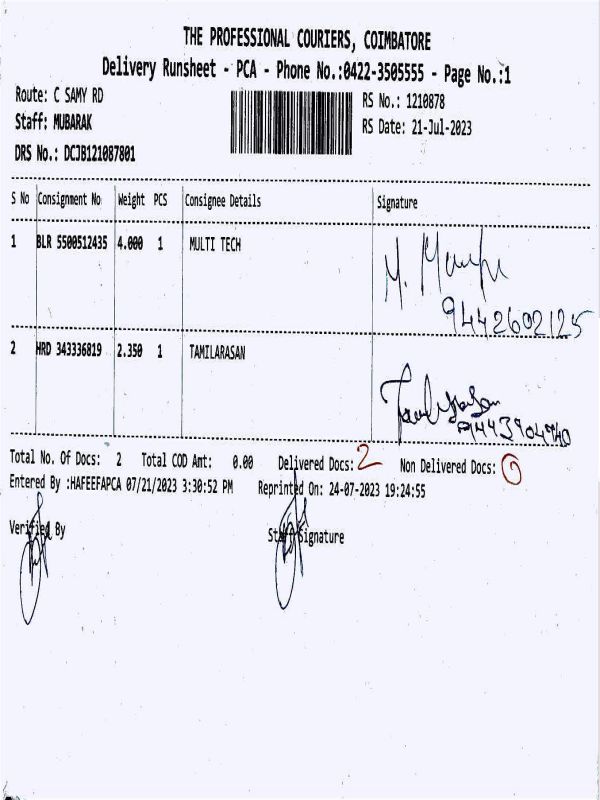 THE PROFESSIONAL COURIERS, COIMBATORE
Delivery Runsheet - PCA - Phone No.:0422-3505555 - Page No.:1
Route: C SAMY RD
RS No.: 1210878
Staff: MUBARAK
RS Date: 21-Jul-2023
DRS No.: DCJB121087801
S No Consignment No Weight PCS Consignee Details Signature
1 BLR 5500512435 4.000 1 MULTI TECH
9442602125
2 HRD 343336819 2.350 1 TAMILARASAN
9443904940
Total No. Of Docs: 2 Total COD Amt: 0.00 Delivered Docs: 2 Non Delivered Docs: 0
Entered By :HAFEEFAPCA 07/21/2023 3:30:52 PM Reprinted On: 24-07-2023 19:24:55
Verified By Staff Signature